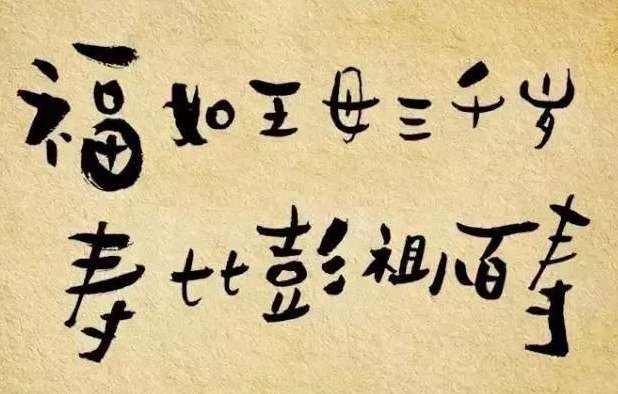 福如王母三千岁
寿比彭祖八百寿